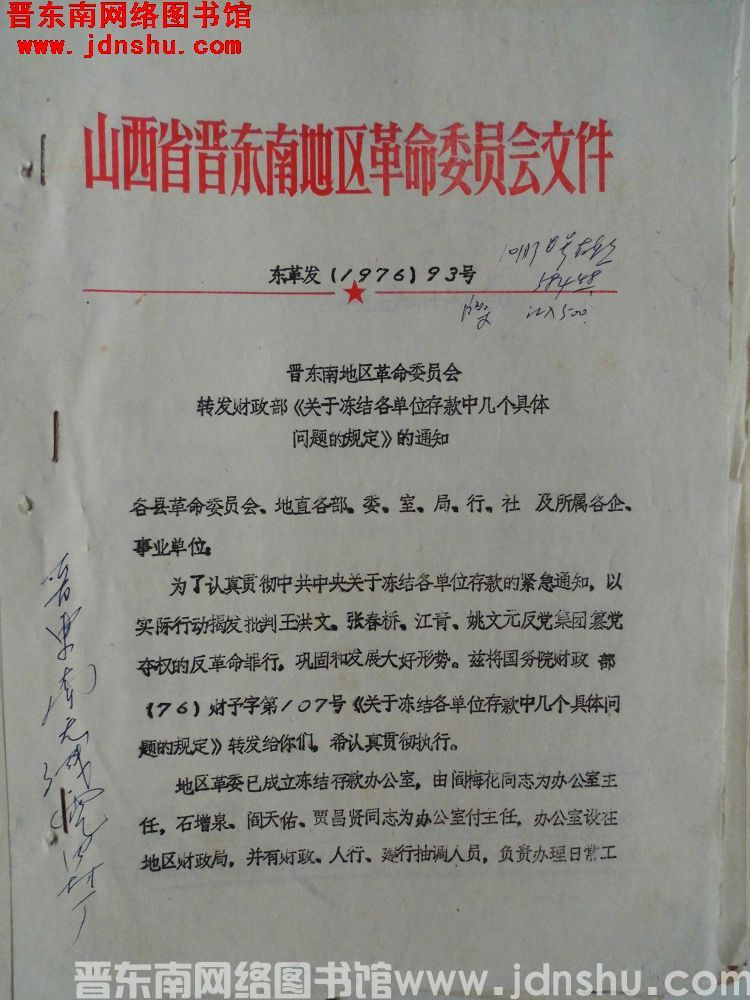 晋东南网络图书馆
www.jdnshu.com
山西省晋东南地区革命委员会文件
东革发(1976)93号
晋东南地区革命委员会
转发财政部《关于冻结各单位存款中几个具体
问题的规定》的通知
各县革命委员会、地直各部、委、室、局、行、社 及所属各企、
事业单位:
为了认真贯彻中共中央关于冻结各单位存款的紧急通知,以
实际行动揭发批判王洪文、张春桥、江青、姚文元反党集团篡党
夺权的反革命罪行,巩固和发展大好形势。兹将国务院财政 部
(76)财予字第107号《关于冻结各单位存款中几个具体问
题的规定》转发给你们,希认真贯彻执行。
地区革委已成立冻结存款办公室,由阎梅花同志为办公室主
任,石增泉、阎天佑、贾昌贤同志为办公室付主任,办公室设在
地区财政局,并有财政、人行、建行抽调人员,负责办理日常工
晋东南
晋东南网络图书馆www.jdnshu.com